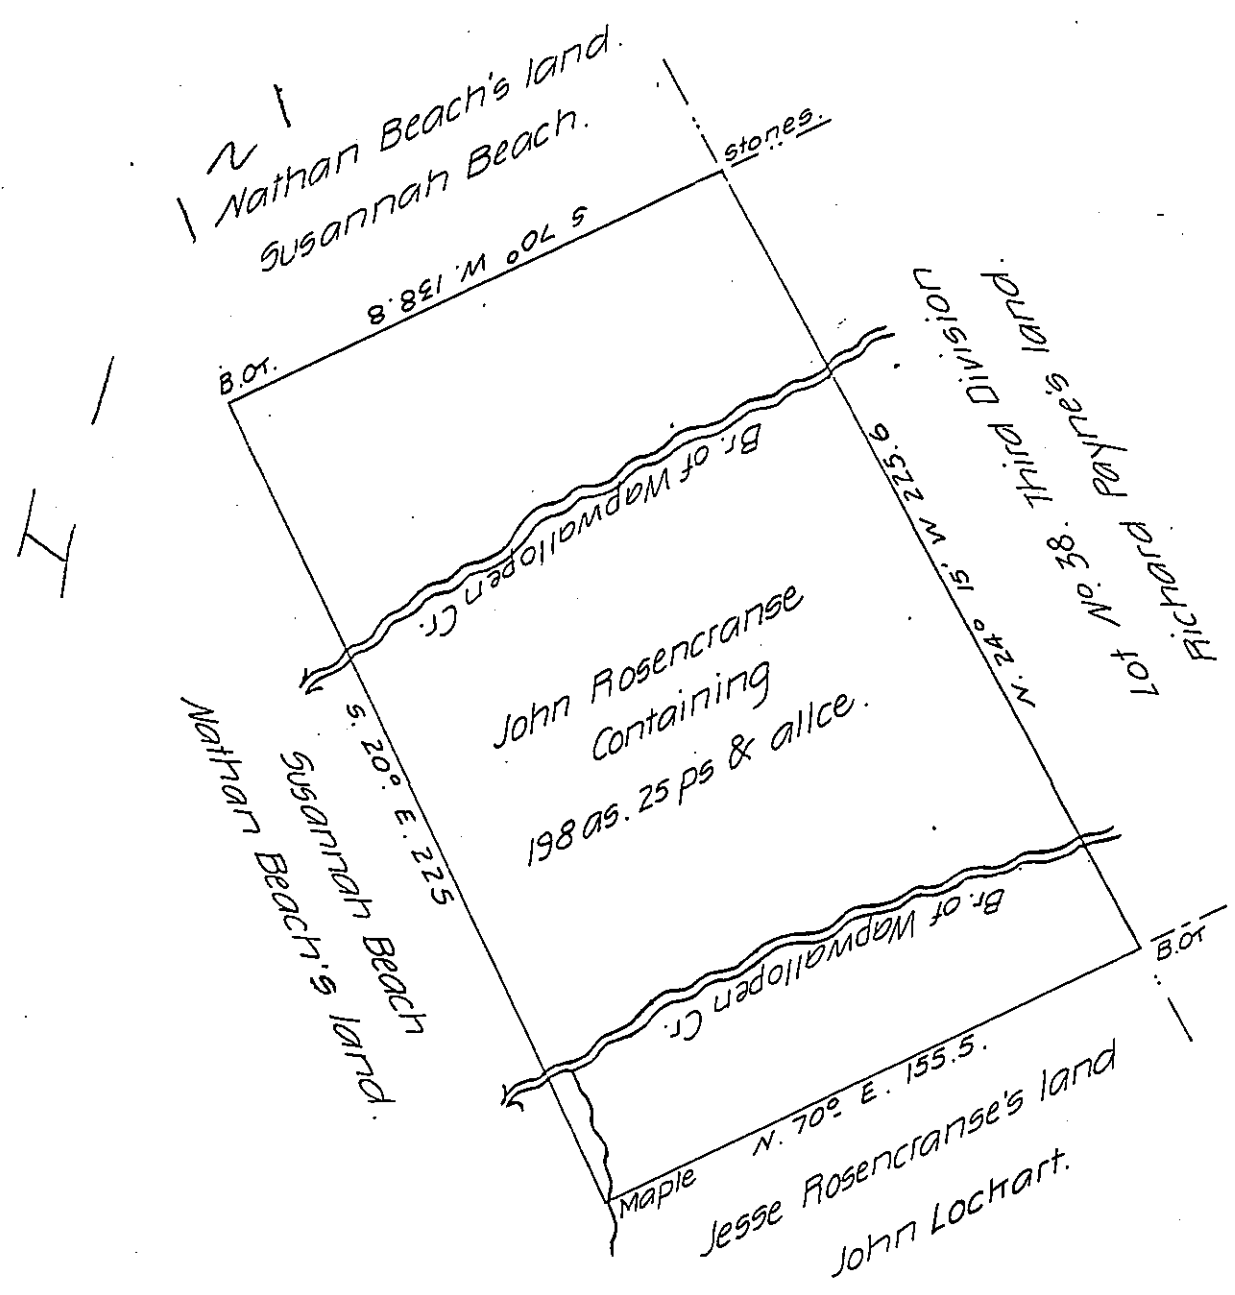 Nathan Beach's land.
Susannah Beach.
stones.
S 70° W. 138.8
B.OT.
Br. of Wapwallopen Cr.
N. 24° 15' W 225.6
Lot No. 38. Third Division
Richard Payne's land.
John Rosencranse
Containing
198 as. 25 ps & allce.
S. 20° E. 225
Susannah Beach
Nathan Beach's land.
Br. of Wapwallopen Cr.
B.OT
N. 70° E. 155.5.
Maple
Jesse Rosencranse's land
John Lockart.